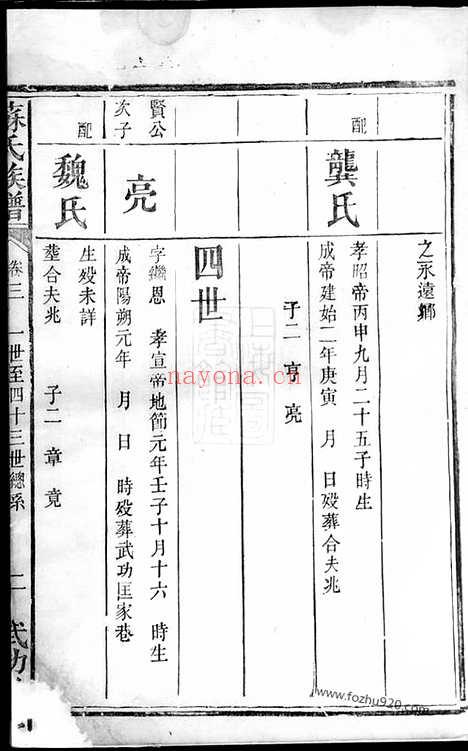 之永遠鄉
配
龔氏
孝昭帝丙申九月二十五子時生
成帝建始二年庚寅 月 日歿葬合夫兆
子二 亨 亮
四世
賢公
次子
亮
字繼恩 孝宣帝地節元年壬子十月十六 時生
成帝陽朔元年 月 日 時歿葬武功匡家巷
配
魏氏
生歿未詳
塟合夫兆 子二 章 竟
蘇氏族譜
卷三 一世至四十三世總系 二 武功
nayona.cn
www.fozhu920.com